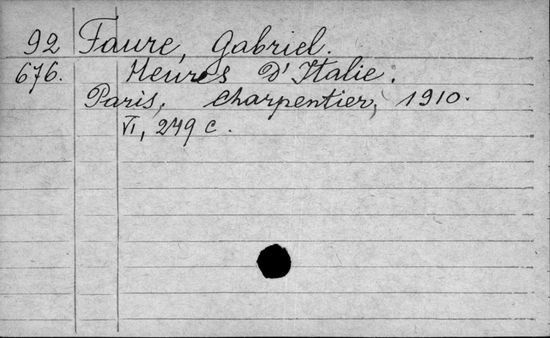 92 Faure, Gabriel.
676. Heures D'Italie.
Paris, Charpentier, 1910.
VI, 249 c.